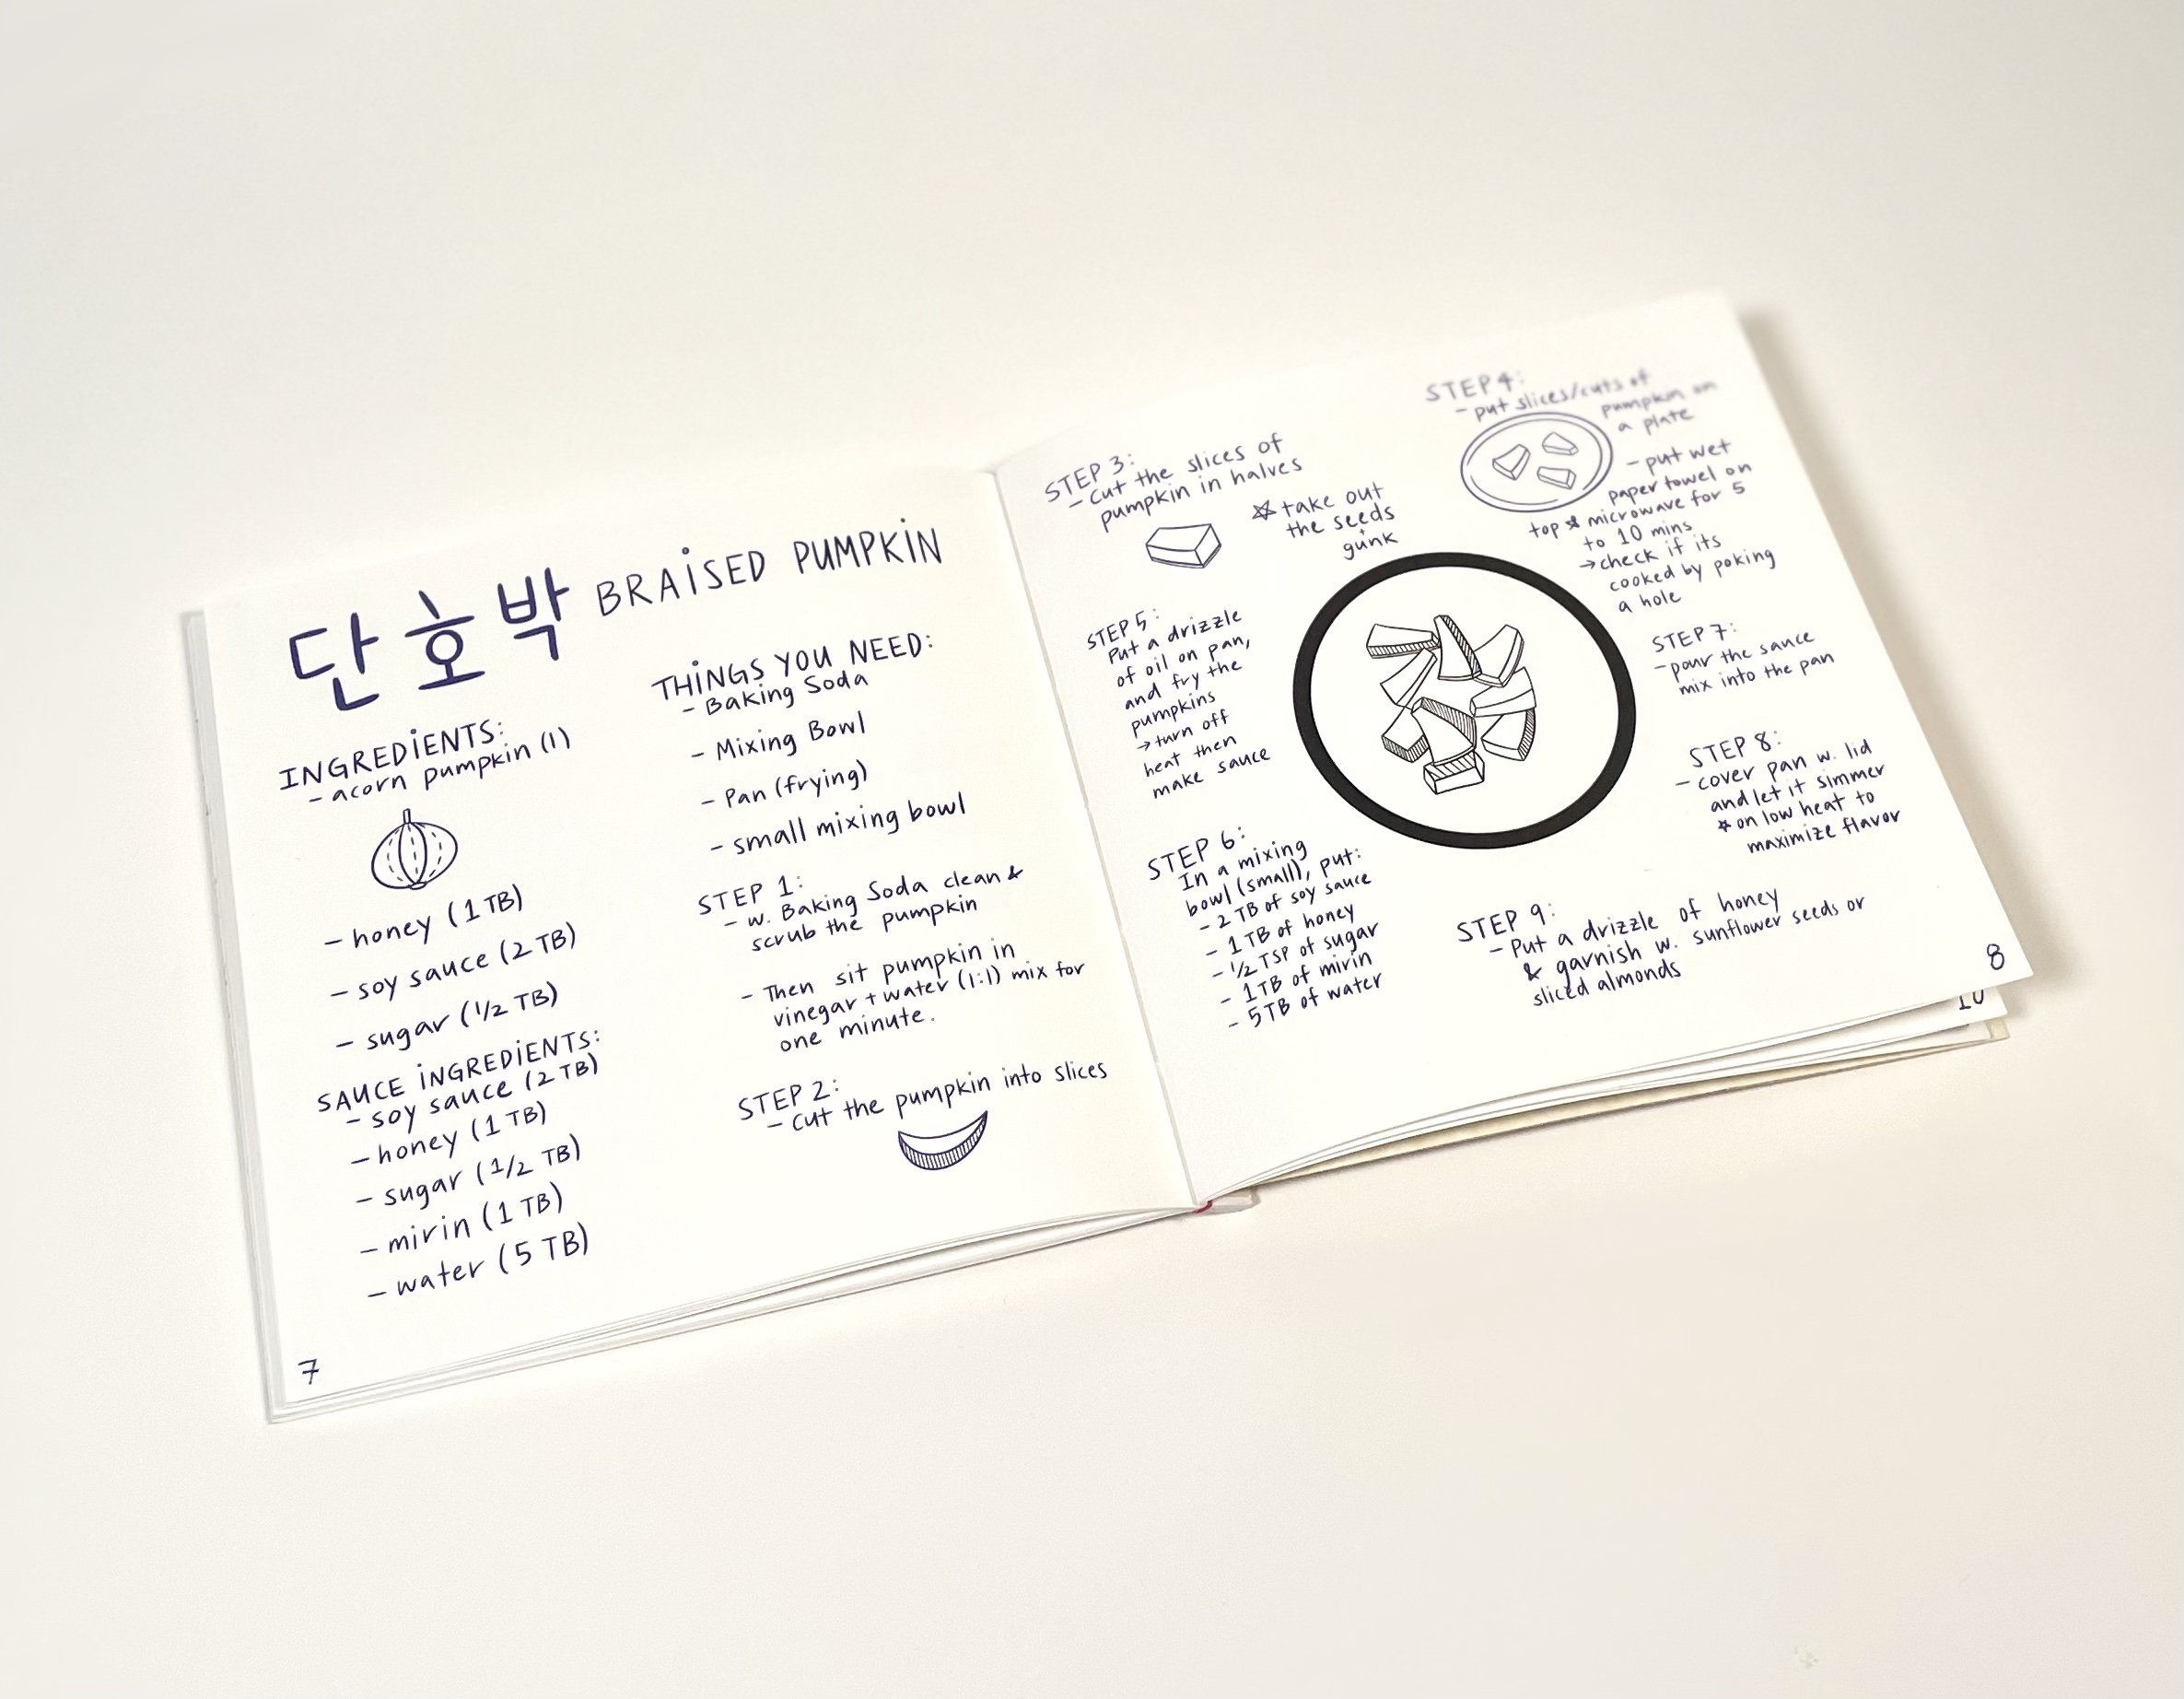 단호박 BRAISED PUMPKIN
INGREDIENTS:
- acorn pumpkin (1)
- honey (1 TB)
- soy sauce (2 TB)
- sugar (1/2 TB)
SAUCE INGREDIENTS:
- soy sauce (2 TB)
- honey (1 TB)
- sugar (1/2 TB)
- mirin (1 TB)
- water (5 TB)
7
THINGS YOU NEED:
- Baking Soda
- Mixing Bowl
- Pan (frying)
- small mixing bowl
STEP 1:
- w. Baking Soda clean &
scrub the pumpkin
- Then sit pumpkin in
vinegar + water (1:1) mix for
one minute.
STEP 2:
- Cut the pumpkin into slices
STEP 3:
- Cut the slices of
pumpkin in halves
☆ take out
the seeds
+
gunk
STEP 4:
- put slices/cuts of
pumpkin on
a plate
- put wet
paper towel on
top & microwave for 5
to 10 mins
→ check if its
cooked by poking
a hole
STEP 5:
Put a drizzle
of oil on pan,
and fry the
pumpkins
→ turn off
heat then
make sauce
STEP 6:
In a mixing
bowl (small), put:
- 2 TB of soy sauce
- 1 TB of honey
- 1/2 TSP of sugar
- 1 TB of mirin
- 5 TB of water
STEP 7:
- pour the sauce
mix into the pan
STEP 8:
- cover pan w. lid
and let it simmer
☆ on low heat to
maximize flavor
STEP 9:
- Put a drizzle of honey
& garnish w. sunflower seeds or
sliced almonds
8
10